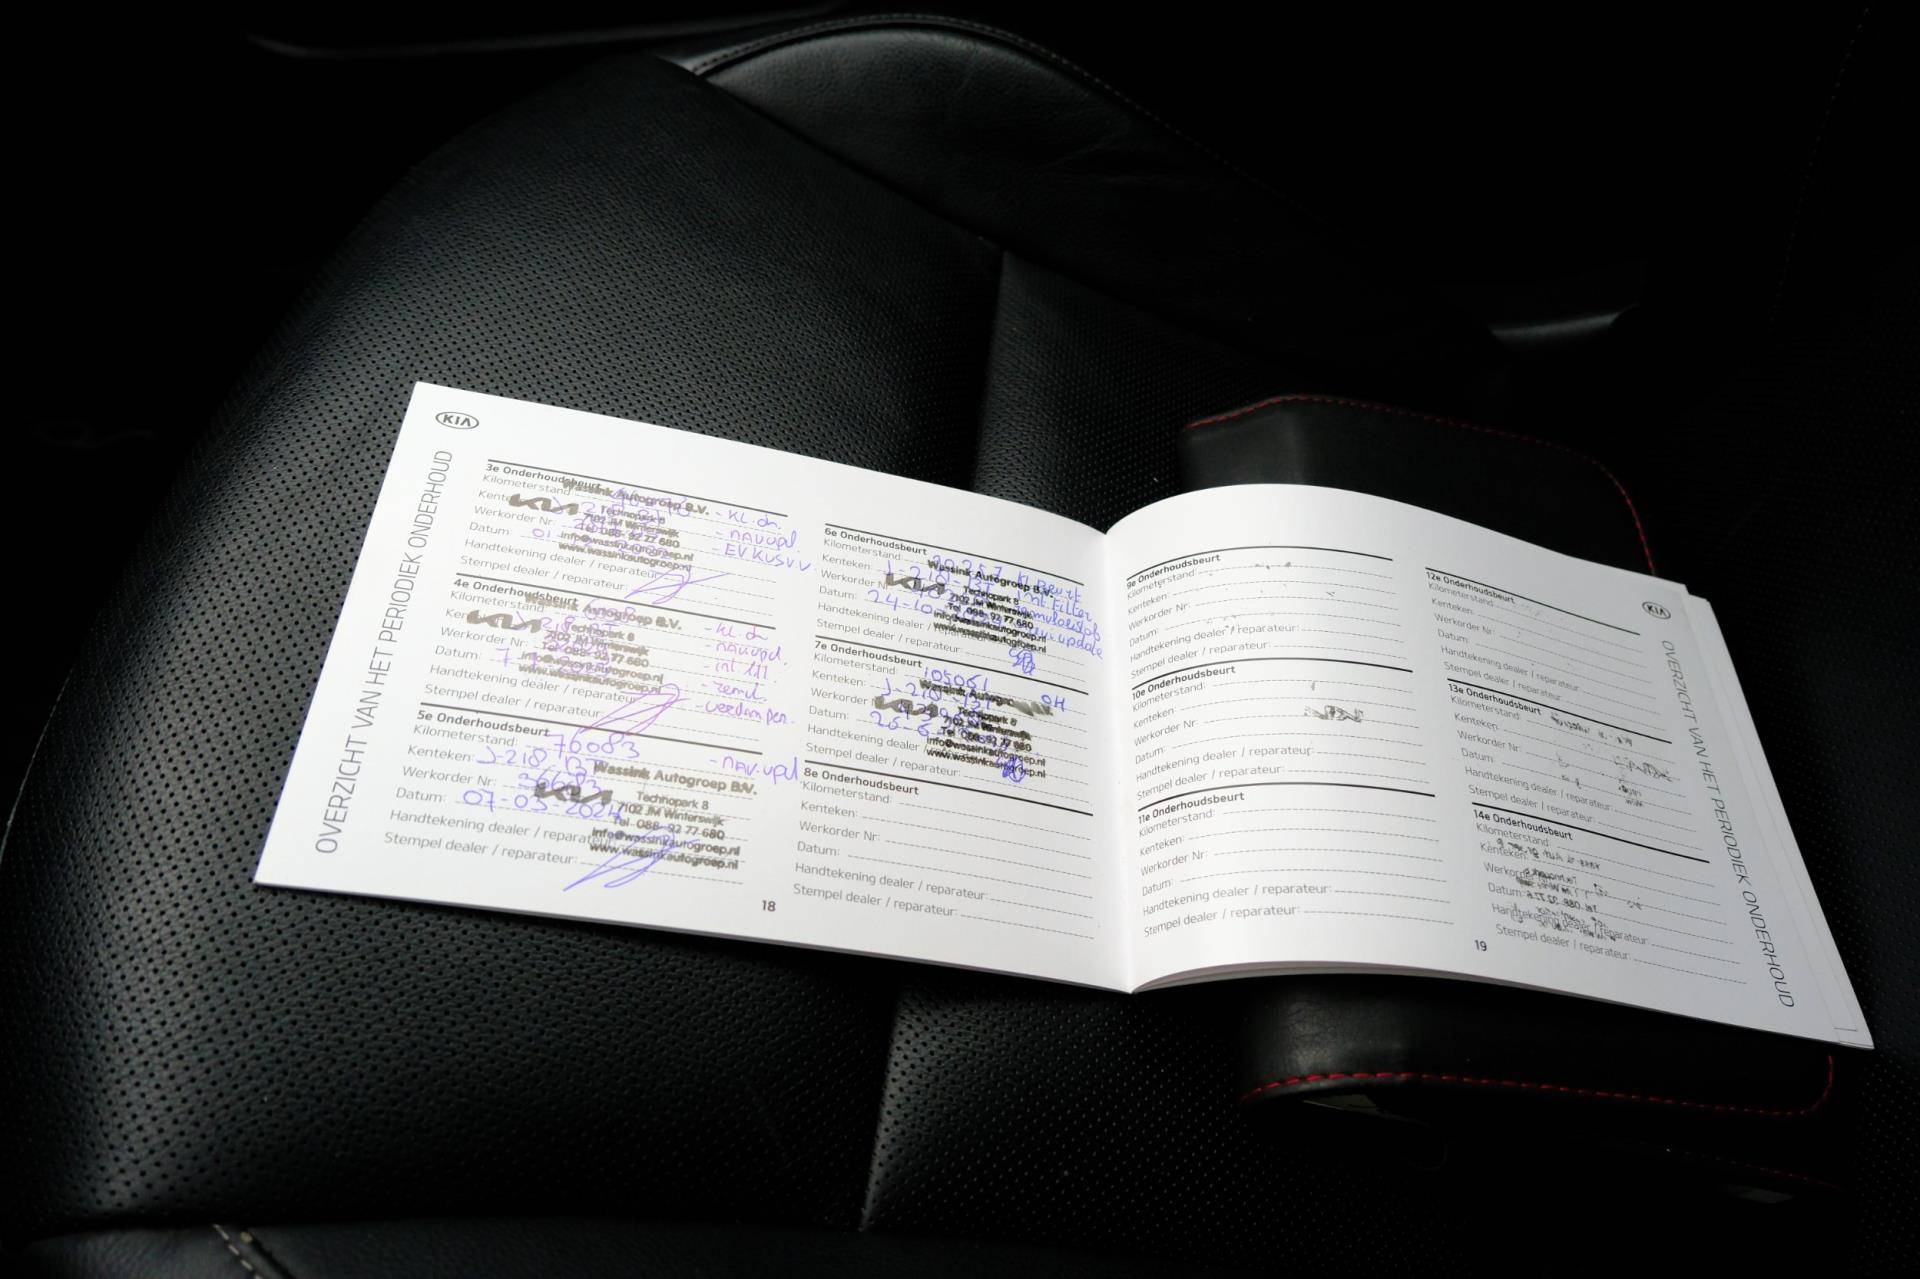 KIA
OVERZICHT VAN HET PERIODIEK ONDERHOUD
3e Onderhoudsbeurt
Kilometerstand
Wassink Autogroep B.V.
KIA
Technopark 8
7102 JM Winterswijk
Tel 088- 92 77 680
info@wassinkautogroep.nl
www.wassinkautogroep.nl
Werkorder Nr:
Datum: 01
Handtekening dealer / reparateur:
Stempel dealer / reparateur:
- KL. ch.
- nav upd.
- EV KUSV.V
4e Onderhoudsbeurt
Kilometerstand:
Wassink Autogroep B.V.
KIA
Technopark 8
7102 JM Winterswijk
Tel 088- 92 77 680
info@wassinkautogroep.nl
www.wassinkautogroep.nl
Werkorder Nr:
Datum: 7
Handtekening dealer / reparateur:
Stempel dealer / reparateur:
- KL. ch
- nav upd.
- int
- remvl.
- verdamper.
5e Onderhoudsbeurt
Kilometerstand: 76083
Kenteken: J-218-BT
- NAV. upd
Werkorder Nr: 36683
Datum: 07-03-2024
Handtekening dealer / reparateur:
Stempel dealer / reparateur:
Wassink Autogroep B.V.
KIA
Technopark 8
7102 JM Winterswijk
Tel 088- 92 77 680
info@wassinkautogroep.nl
www.wassinkautogroep.nl
6e Onderhoudsbeurt
Kilometerstand:
Kenteken: J-218-BT
Werkorder Nr
Datum: 24-10
Handtekening dealer / reparateur:
Stempel dealer / reparateur:
Wassink Autogroep B.V.
KIA
Technopark 8
7102 JM Winterswijk
Tel 088- 92 77 680
info@wassinkautogroep.nl
www.wassinkautogroep.nl
Kl beurt
int Filter
remvloeistof
update
7e Onderhoudsbeurt
Kilometerstand: 105051 OH
Kenteken: J-218-BT
Werkorder
Datum: 26-6
Handtekening dealer
Stempel dealer / reparateur:
Wassink Autogroep
KIA
Technopark 8
7102 JM Winterswijk
Tel 088- 92 77 680
info@wassinkautogroep.nl
www.wassinkautogroep.nl
8e Onderhoudsbeurt
Kilometerstand:
Kenteken:
Werkorder Nr:
Datum:
Handtekening dealer / reparateur:
Stempel dealer / reparateur:
18
9e Onderhoudsbeurt
Kilometerstand:
Kenteken:
Werkorder Nr:
Datum:
Handtekening dealer / reparateur:
Stempel dealer / reparateur:
10e Onderhoudsbeurt
Kilometerstand:
Kenteken:
Werkorder Nr:
Datum:
Handtekening dealer / reparateur:
Stempel dealer / reparateur:
11e Onderhoudsbeurt
Kilometerstand:
Kenteken:
Werkorder Nr:
Datum:
Handtekening dealer / reparateur:
Stempel dealer / reparateur:
12e Onderhoudsbeurt
Kilometerstand:
Kenteken:
Werkorder Nr:
Datum:
Handtekening dealer / reparateur:
Stempel dealer / reparateur:
13e Onderhoudsbeurt
Kilometerstand:
Kenteken:
Werkorder Nr:
Datum:
Handtekening dealer / reparateur:
Stempel dealer / reparateur:
14e Onderhoudsbeurt
Kilometerstand:
Kenteken:
Werkorder
Datum:
Handtekening dealer / reparateur:
Stempel dealer / reparateur:
19
KIA
OVERZICHT VAN HET PERIODIEK ONDERHOUD